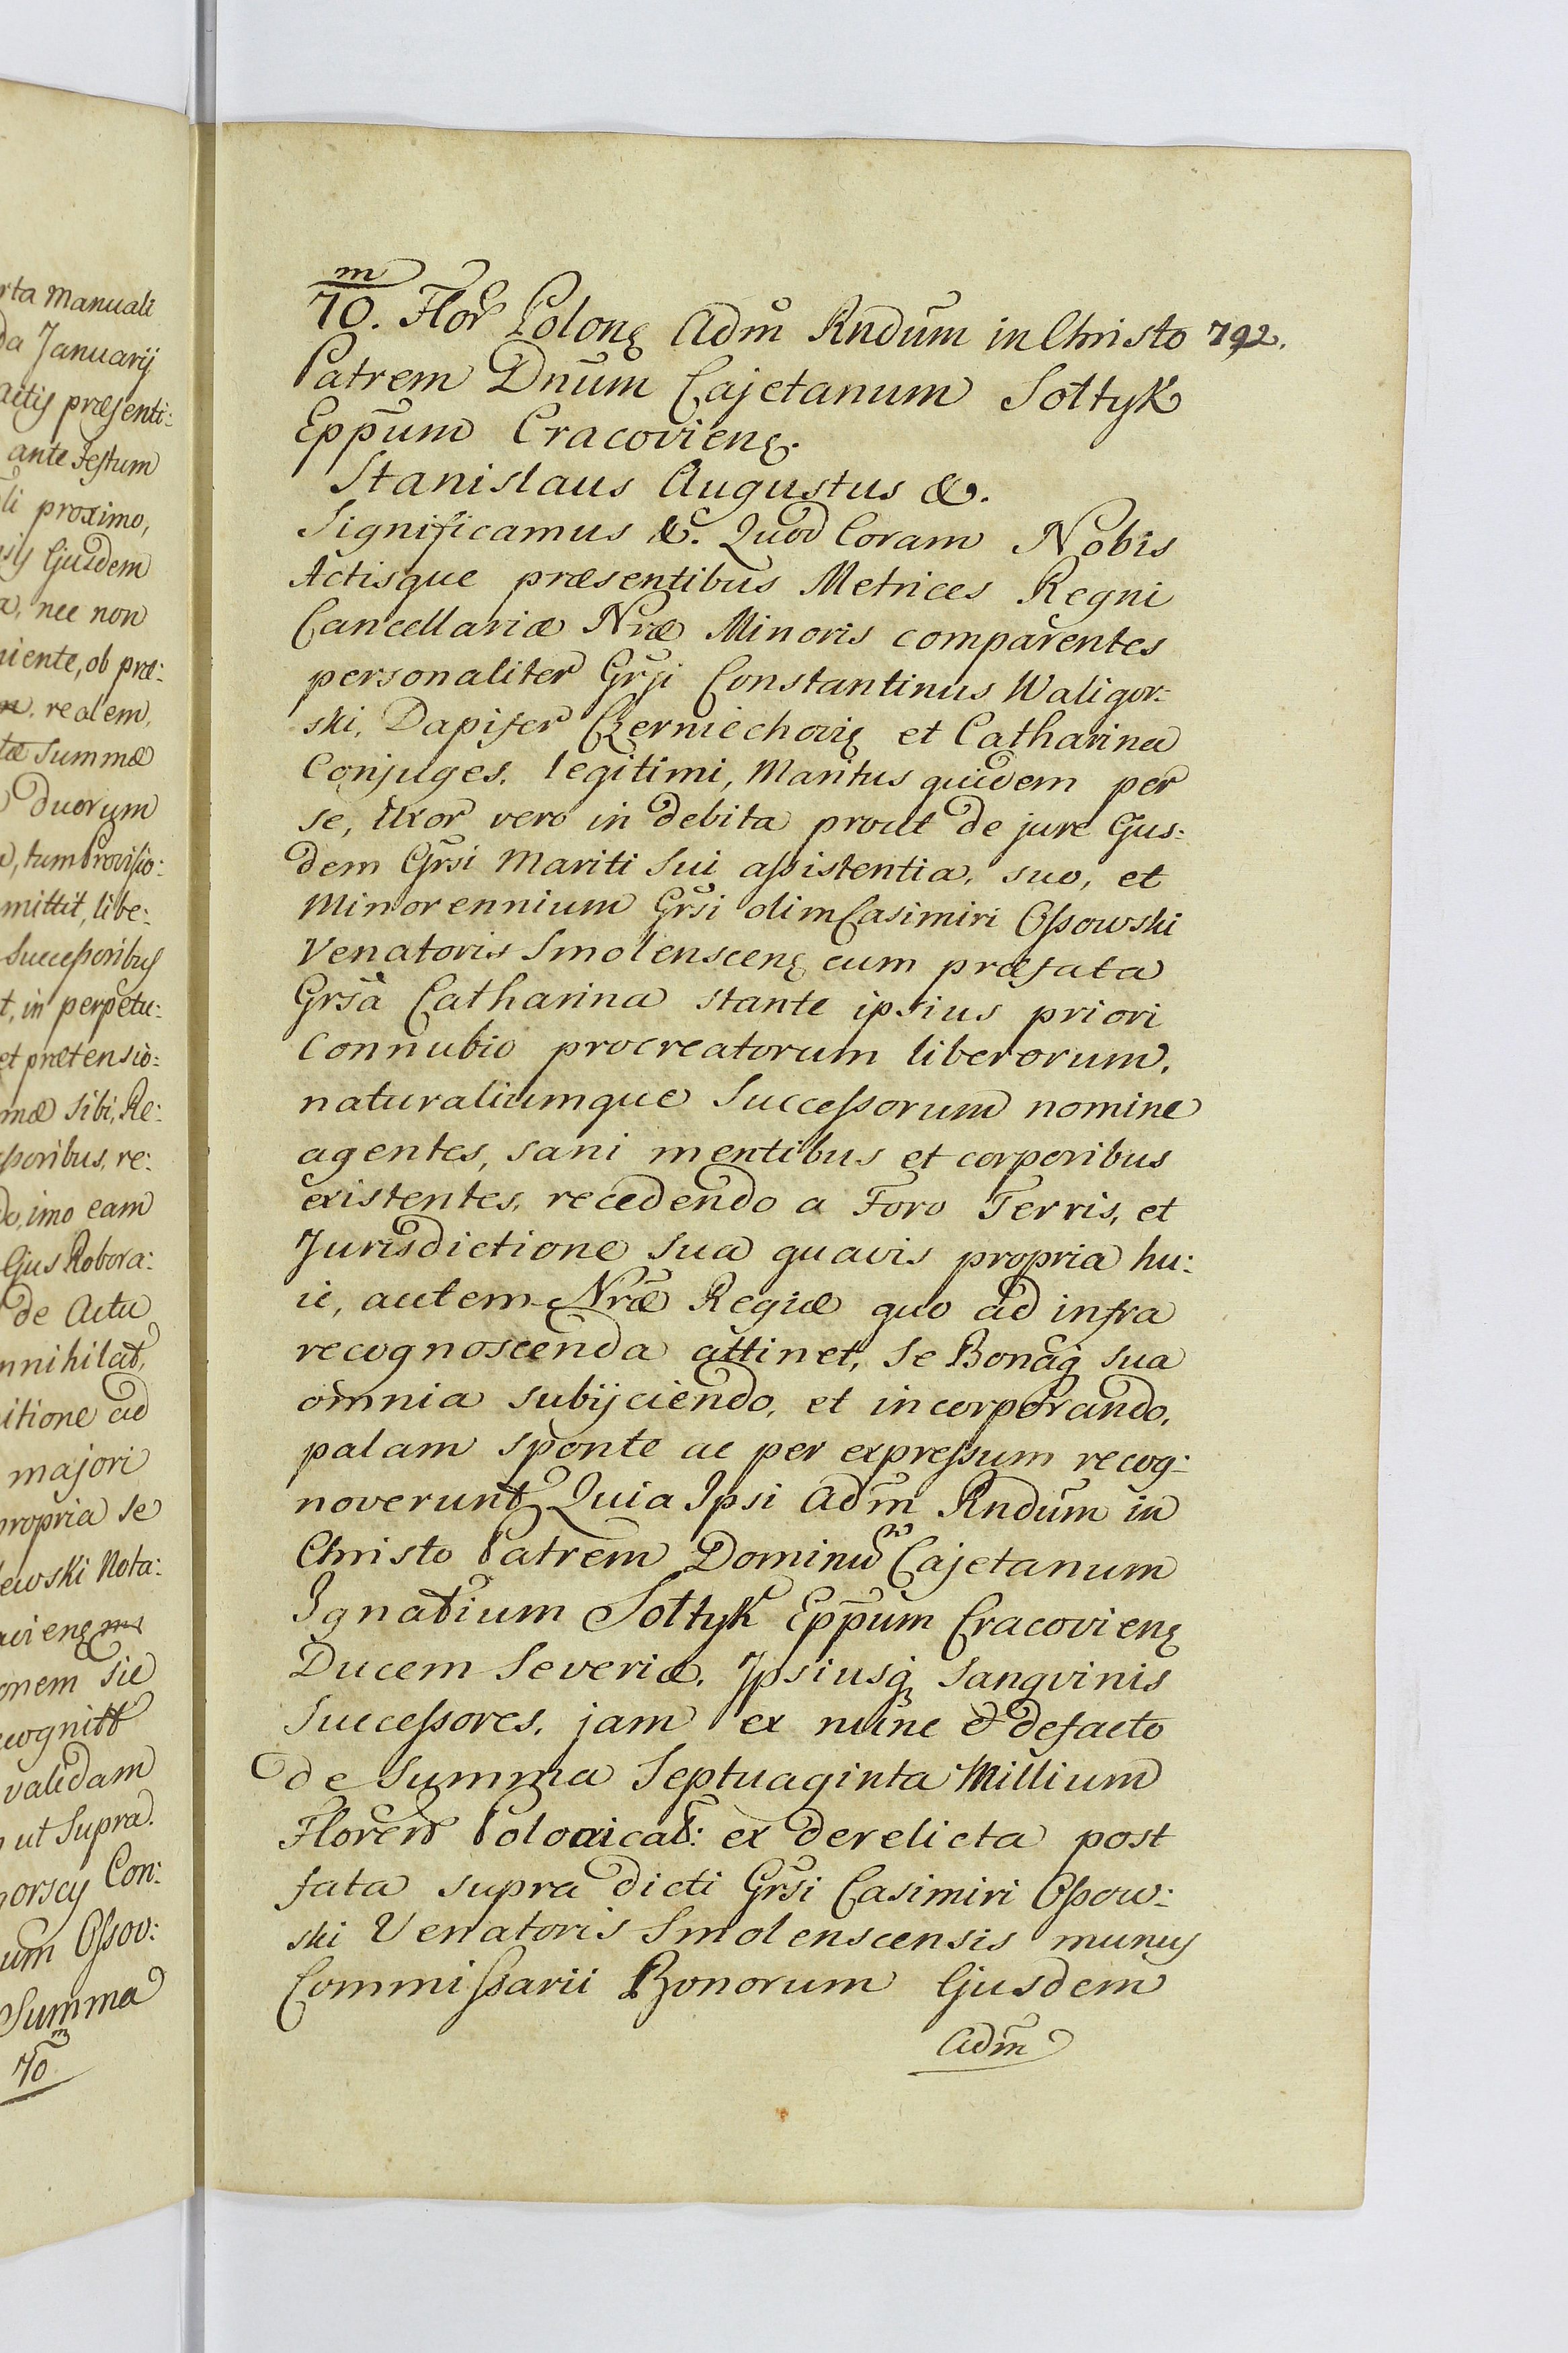 rta Manuali
da Januarij
actis præsenti:
ante Festum
li proximo,
sis Ejusdem
a, nec non
niente, ob præ:
realem,
tæ Summæ
duorum
a, tum Provisio:
mittit, libe:
Successoribus
t, in perpetu:
et prætensio:
mæ sibi, Re:
ssoribus, re:
do, imo eam
Ejus Robora:
de Actu
nnihilat,
itione ad
majori
propria se
lewski Nota:
onem sic
cognitt
validam
ut Supra.
gorscy Con:
um Ossov:
Summa
m
70
m
70. Flor̃ Polonę Adm̃ Rndũm in Christo 792.
Patrem Dnũm Cajetanum Sołtyk
Epp̃um Cracovienę.
Stanislaus Augustus &.
Significamus &. Quod Coram Nobis
Actisque præsentibus Metrices Regni
Cancellariæ Nræ Minoris comparentes
personaliter Gr̃si Constantinus Waligor:
ski, Dapifer Czerniechovię et Catharina
Conjuges, legitimi, Maritus quidem per
se, Uxor vero in debita prout de jure Ejus:
dem Gr̃si Mariti Sui assistentia, suo, et
Minorennium Gr̃si olim Casimiri Ossowski
Venatoris Smolenscenę cum præfata
Gr̃sa Catharina stante ipsius priori
Connubio procreatorum liberorum,
naturaliumque Successorum nomine
agentes, sani mentibus et corporibus
existentes, recedendo a Foro Terris, et
Jurisdictione sua quavis propria hu:
ic, autem Nræ̃ Regiæ quo ad infra
recognoscenda attinet, se Bonaq̃ sua
omnia subijciendo, et incorporando,
palam sponte ac per expressum recog:
noverunt Quia Ipsi Adm̃ Rndũm in
Christo Patrem Dominũm Cajetanum
Ignatium Sołtyk Epp̃um Cracovienę
Ducem Severiæ, Ipsiusq̃ Sangvinis
Successores, jam ex nunc & defacto
de Summa Septuaginta Millium
Floren̄ Polonicał: ex derelicta post
fata supra dicti Gr̃si Casimiri Ossow:
ski Venatoris Smolenscensis munus
Commissarii Bonorum Ejusdem
Adm̃